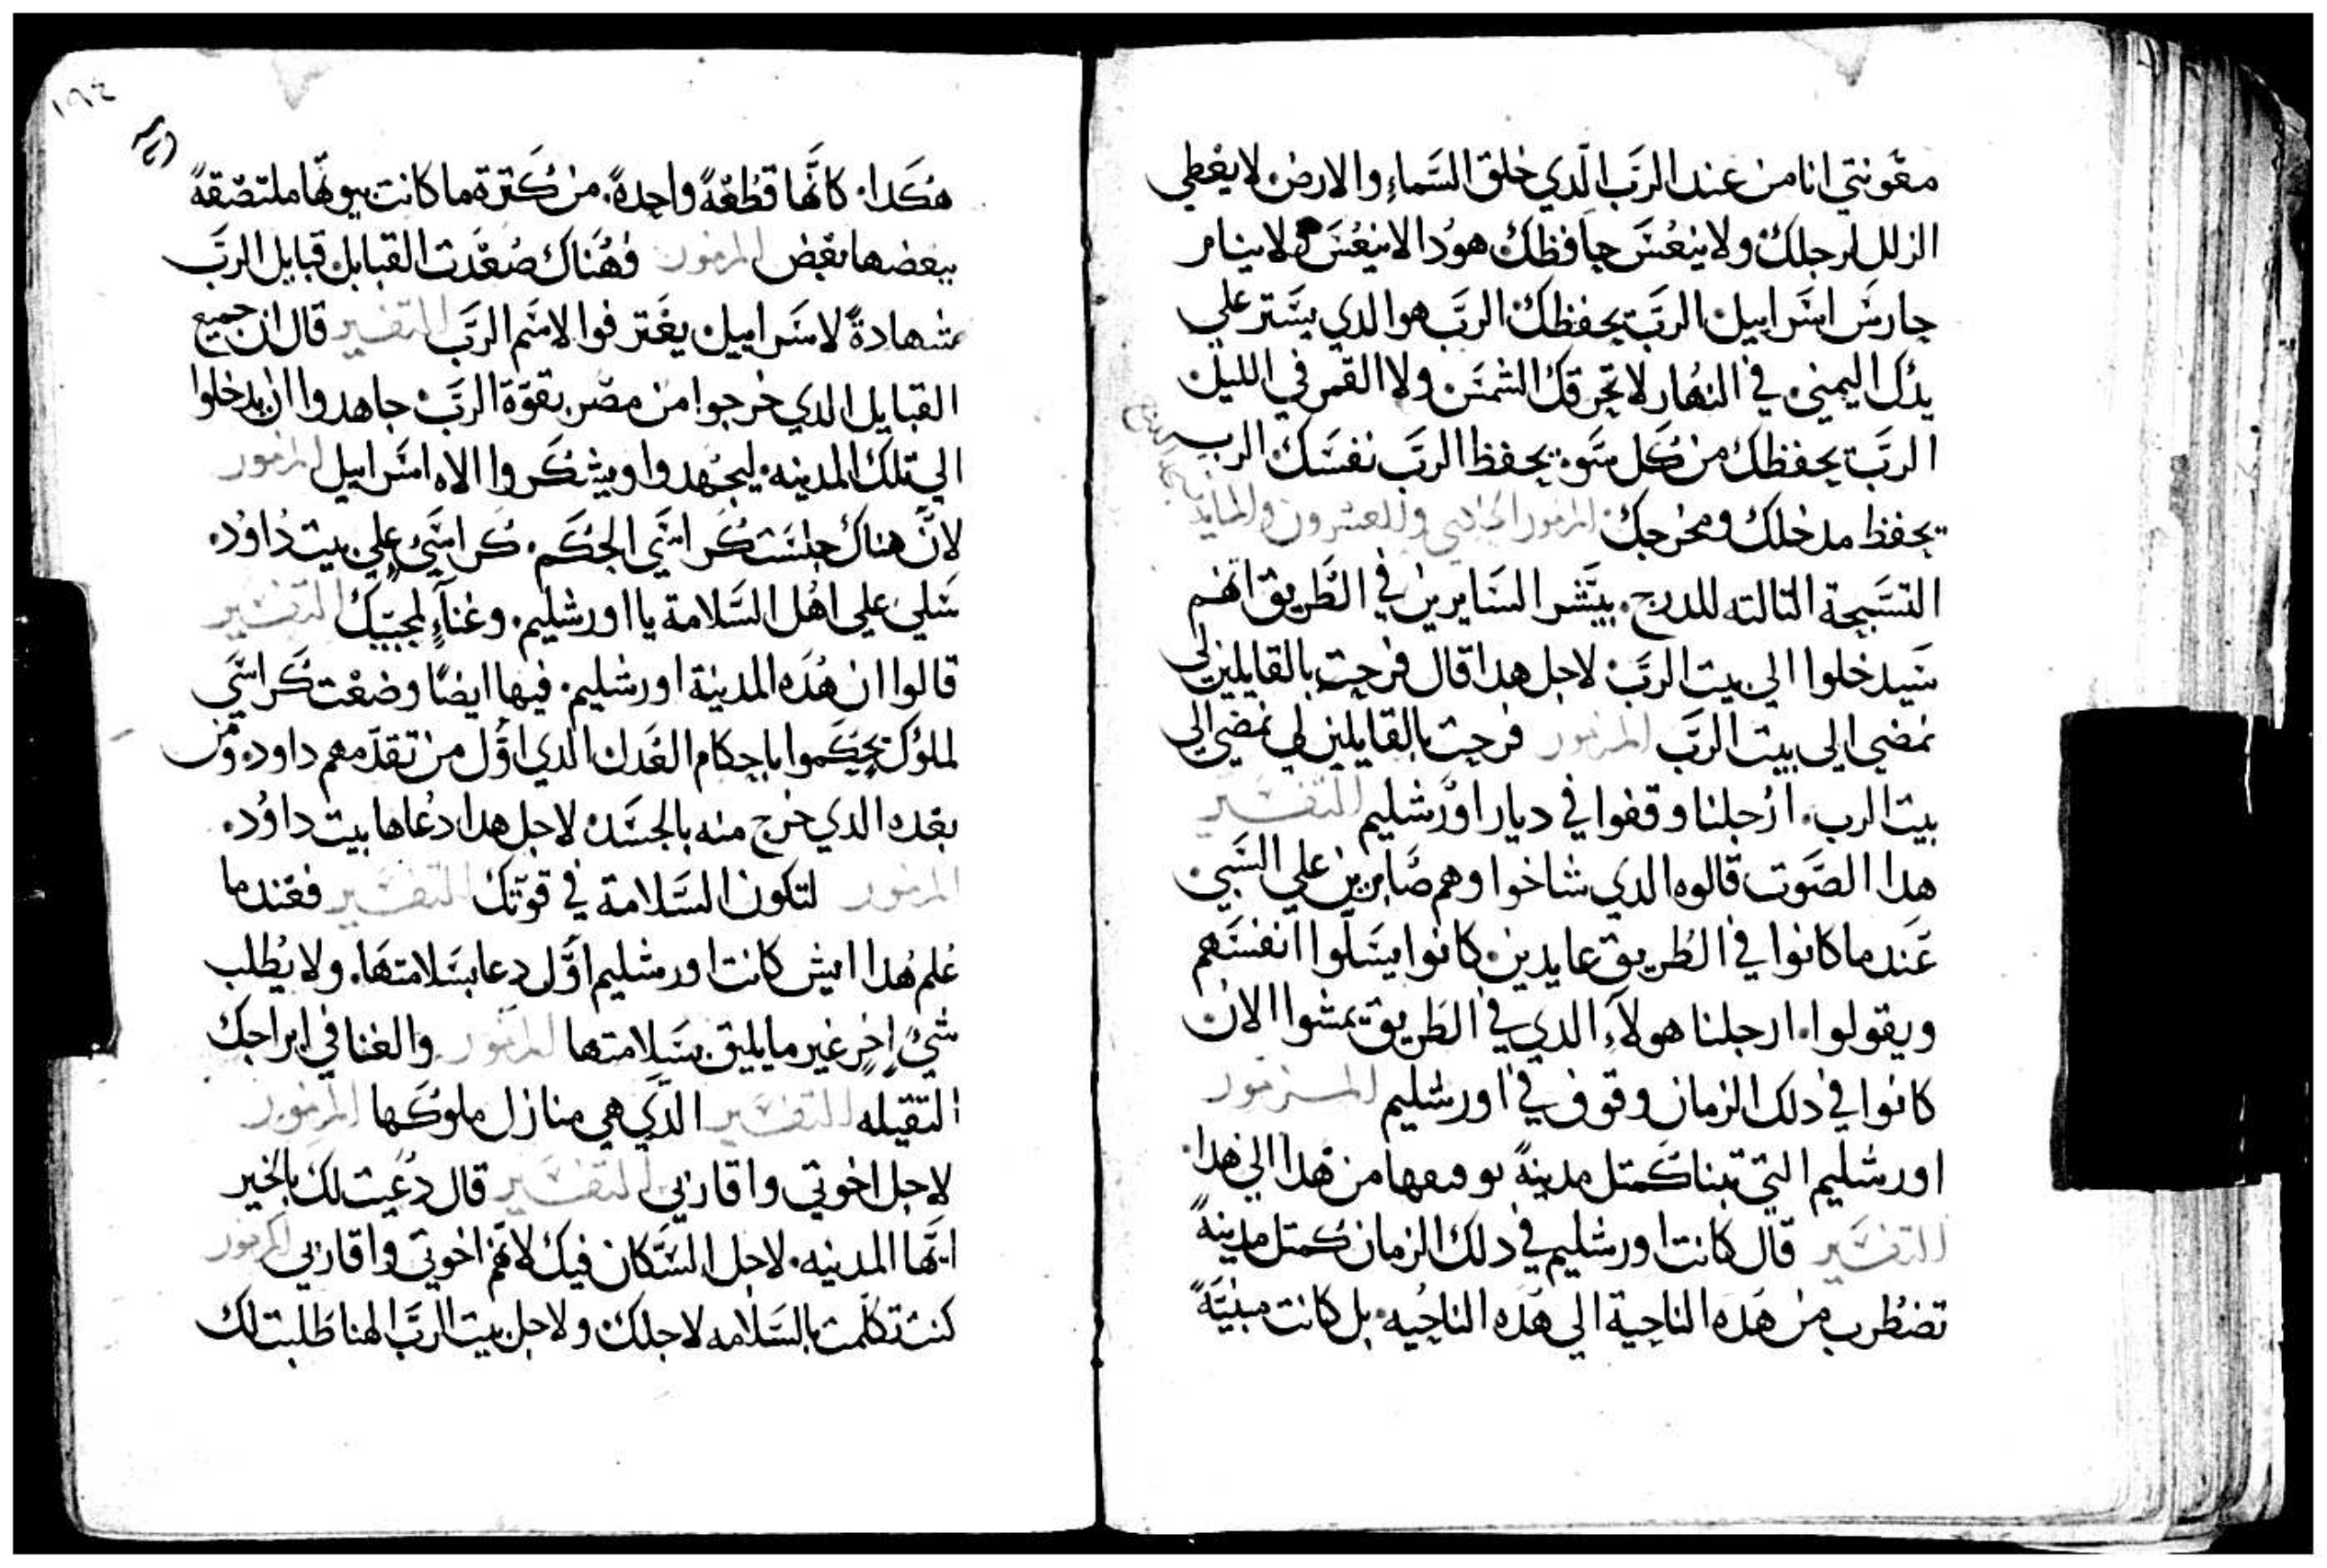 معونتي انا من عند الرَّب الَّدي خلق السَّماءِ والارض لا يعطي
الزلل لرجلك ولا ينعُسَ حافظك هودا لا ينعُسَ ولا ينام
حارسَ اسَراييل الرَّب يحفظك الرَّب هو الدي يسَتر علي
يدُك اليمني في النهار لا تحرقك الشمسَ ولا القمر في الليل
الرَّب يحفظك من كَل سَوء يحفظ الرَّب نفسَك الرب
يحفظ مدخلك ومخرجك المزمور الحادي والعشرون والمايه
التسَبحة التالته للدرج. يبَشر السَايرين في الطَريق انهم
سَيدخلوا الي بيت الرَّب لاجل هدا قال فرحت بالقايلين لي
نمضي الي بيت الرَّب المزمور فرحت بالقايلين لي نمضي الي
بيت الرب. ارُجلنا وقفوا في ديار اورُشليم التفسَير
هدا الصَّوت قالوه الدي شاخوا وهم صَابرين علي السَبي
عَندما كانوا في الطُريق عايدين كانوا يسَلّوا انفسَهم
ويقولوا. ارجلنا هولآءِ الدي في الطَريق يمشوا الان
كانوا في دلك الزمان وقوف في اورشليم المزمور
اورشليم التي تبنا كَمتل مدينةً من هُدا الي هدا
التفسَير قال كانت اورشليم في دلك الزمان كمتل مدينةً
تضطُرب من هَده الناحية الي هَده الناحُيه. بل كانت مبنيَّةً
١٩٤
هُكَدا. كانَّها قطُعةً واحدةً. من كُترة ما كانت بيوتَها ملتصَقةً
ببعضها بعَض المزمور وهُناك صُعدَت القبايل قبايل الرَّب
شهادةً لاسَراييل يعَترفوا لاسَم الرَّب التفسَير قال ان جميع
القبايل الدي خرجوا من مصَر بقوّة الرَّب جاهدوا ان يدخلوا
الي تلك المدينه. ليجهُدوا ويشكَروا الاه اسَراييل المزمور
لانَّ هناك جلسَت كُراسَي الحُكَم. كُراسَيُ علي بيت داوُد.
سَلي علي اهُل السَّلامة يا اورشليم. وغناءٍ لمحبيك التفسَير
قالوا ان هُده المدينة اورشليم. فيها ايضًا وضعُت كَراسَي
لملوُك يحكَموا باحكام العَدل الدي اوَّل من تقدّمهم داود. ومَن
بعَده الدي خرج منه بالجسَد لاجل هدا دعُاها بيت داوُد.
المزمور لتكون السَّلامة في قوّتك التفسَير فعَندما
عُلم هُدا ايش كانت اورشليم اوَّل دعا بسَلامتهَا. ولا يطُلب
شيُ اخر غير ما يليق بسَلامتها المزمور والغنا في ابراجك
التقيله التفسَير الدَّي هي منازل ملوكَها المزمور
لاجل اخوتي واقاربي التفسَير قال دعُيت لك بالخير
ايتَها المدينه. لاجل السَّكان فيك لانهَّم اخوتي واقاربي المزمور
كنت تكلّمت بالسَّلامه لاجلك ولاجل بيت الرَّب الهنا طَلبت لك